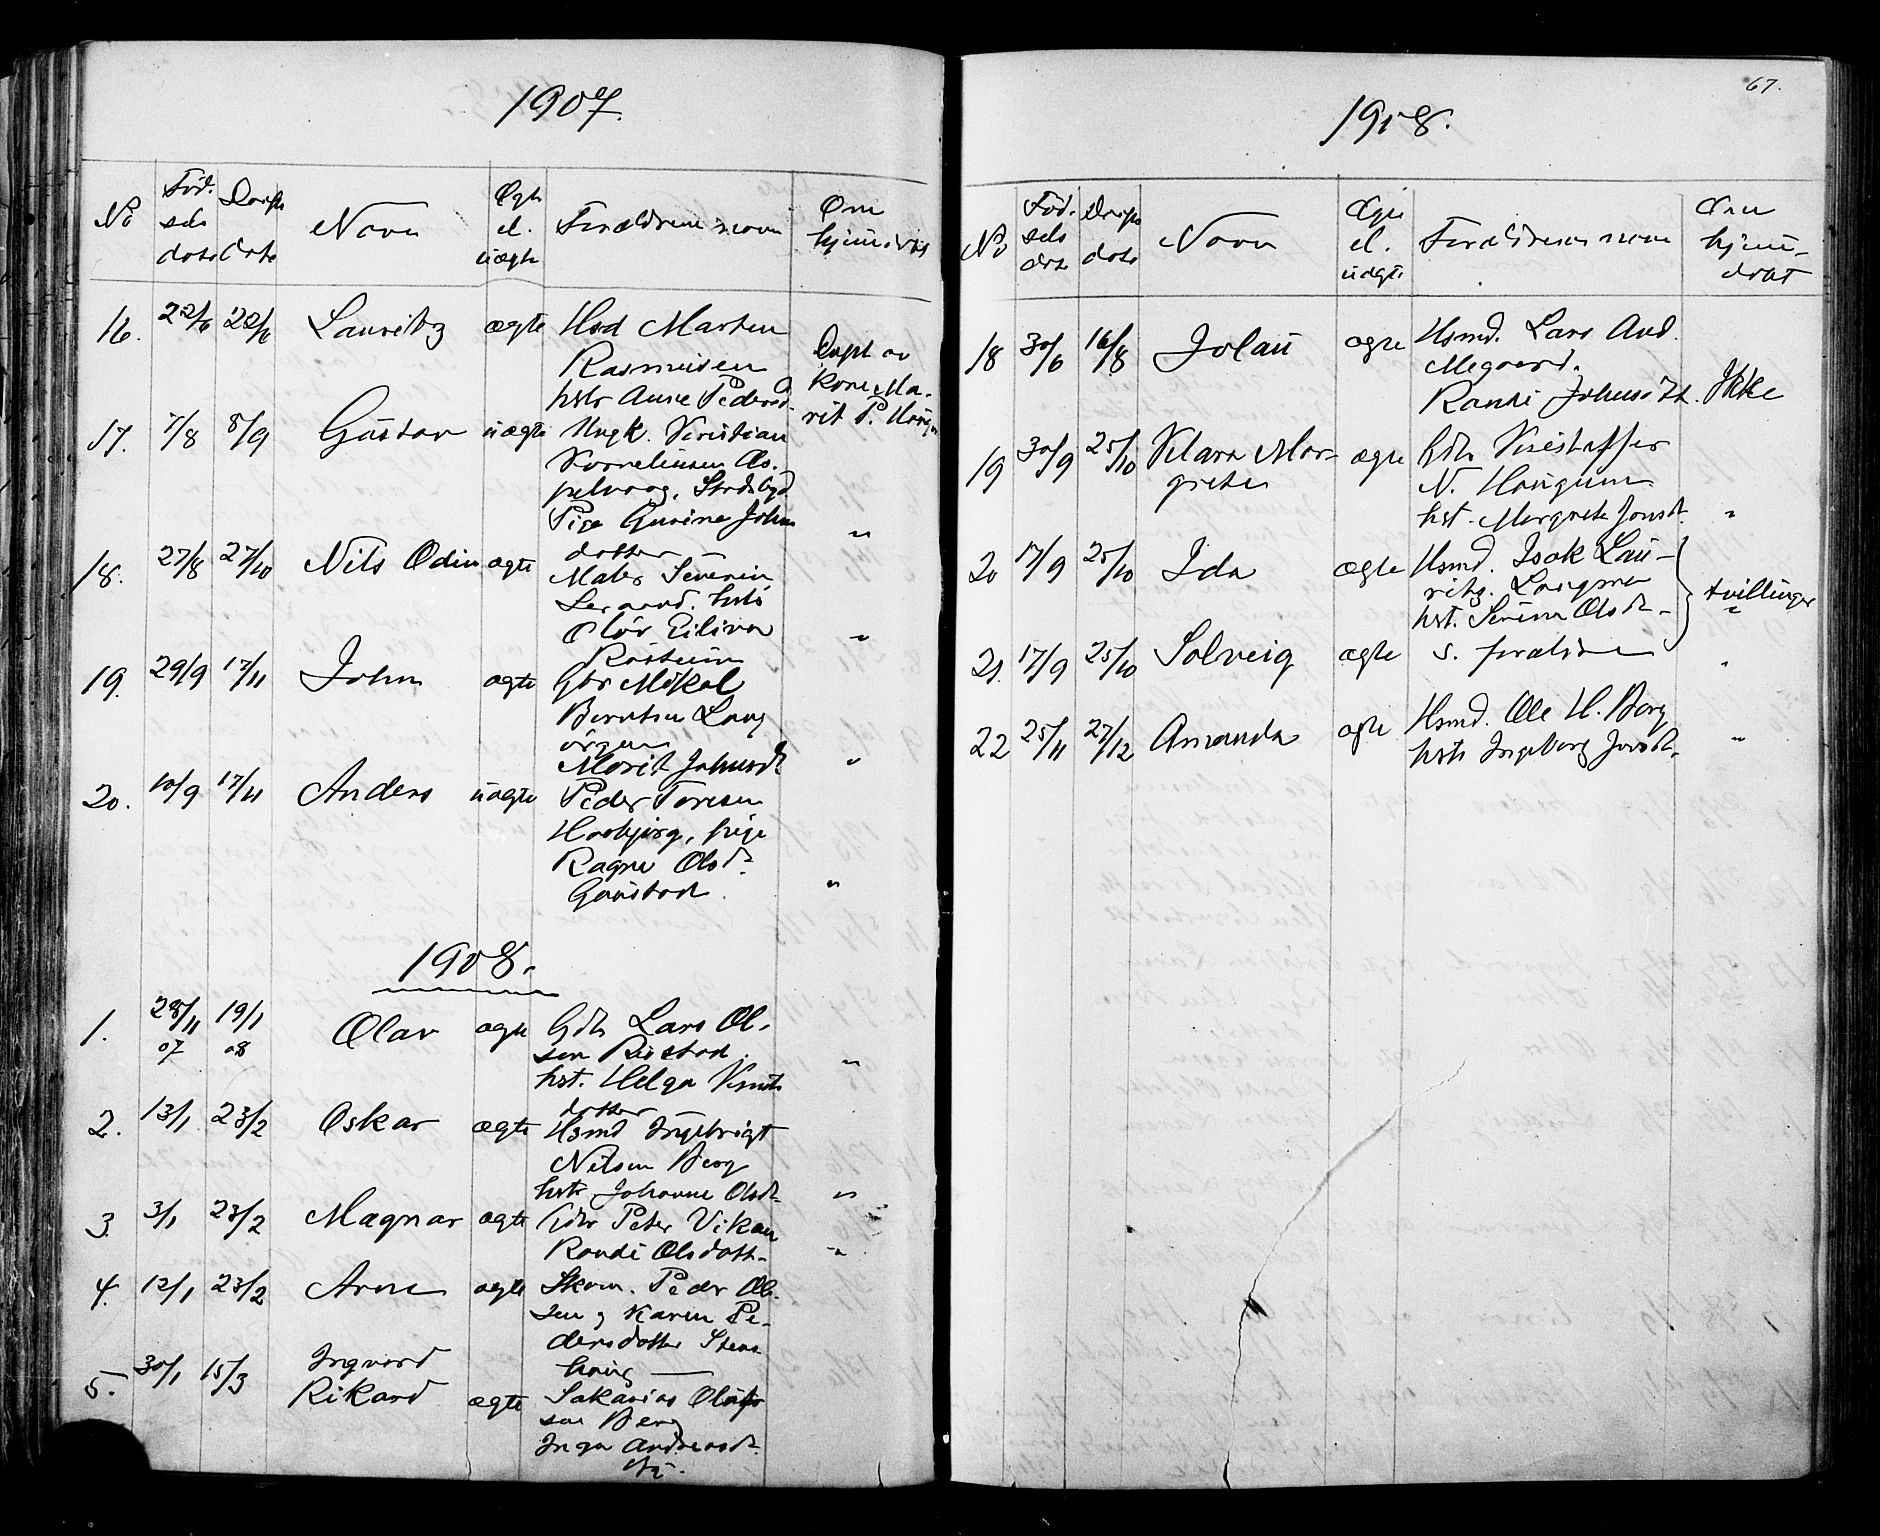 1907.
No
Fød.
sels
dato
Daaps
dato
Navn
Ægte
el.
uægte
Forældrenes navn
Om
hjemdøbt
16. 22/6 22/6 Lauritz ægte Hsd Marten
Rasmusen
hstr Anne Pedersd.
Døpt av
kone Ma-
rit P. Haugen
17. 7/8 8/9 Gustav uægte Ungk. Kristian
Korneliusen As-
pelvaag, Stadsbygd
Pige Gurine Johns
dotter "
18. 27/8 27/10 Nils Odin ægte Maler Severin
hstr
Olav Eilivsa
Røstum "
19. 29/9 17/11 John ægte Gbr Mikal
Berntsen Lang
ørgen
Marit Johnsdt "
20. 10/9 17/11 Anders uægte Peder Toresen
Haabjørg, pige
Ragna Olsdt
Gaustad "
1908.
1. 28/11 07 19/1 08 Olav ægte Gbr Lars Ol-
sen Rustad.
hst. Helga Knuts
dotter "
2. 13/1 23/2 Oskar ægte Hsmd Ingebrigt
Nilsen Berg
hstr Johanne Olsdt. "
3. 3/1 23/2 Magnar ægte Gbr Peter Vikan
Randi Olsdott. "
4. 12/1 23/2 Arne ægte Skom. Peder Ol-
sen og Karen Pe-
dersdotter Stens
haug
5. 30/1 15/3 Ingvard
Rikard ægte Sakarias Olufs
sen Berg
Inga Andreasdt.
67.
1908.
No
Fød-
sels
dato
Daaps
dato
Navn
Ægte
el.
uægte
Forældrenes navn
Om
hjem-
døbt
18 30/6 16/8 Jolau ægte Hsmd. Lars And.
Megaard.
Randi Johnsdt. Ikke
19 30/9 25/10 Klara Mar-
grete ægte Gbr Kristoffer
N. Haugum
hst. Margrete Jonsdt. "
20 17/9 25/10 Ida ægte Hsmd. Isak Lau-
ritz. Langmo
hst. Serina Olsdt.
tvillinger "
21. 17/9 25/10 Solveig ægte s. forældre "
22 25/11 27/12 Amanda ægte Hsmd. Ole H. Berg
hstr Ingeborg Jonsdt. "